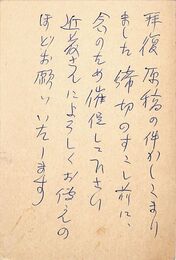 拝復 原稿の件かしこまり
ました 締切のすこし前に、
念のため催促して下さい
近藤さんによろしくお傳えの
ほどお願いいたします